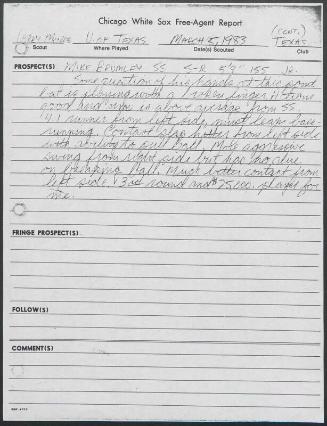 Chicago White Sox Free-Agent Report
(CONT.)
Larry Monroe U. of TEXAS MARCH 5, 1983 TEXAS
Scout Where Played Date(s) Scouted Club
PROSPECT(S) MIKE BRUMLEY SS S-R 5'9" 155 JR.
Some question of his hands at this point
but is playing with a broken finger. Strong
good hand arm is above average from SS.
4.1 runner from left side, must learn base-
running. Contact slap hitter from left side
with no to pull ball. More aggressive
swing from right side but has no clue
on breaking ball. Must better contact from
left side. 3rd round and $25,000 player for
me.
FRINGE PROSPECT(S)
FOLLOW(S)
COMMENT(S)